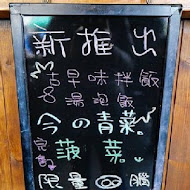 新推出
古早味拌飯
&湯泡飯
今の青菜
菠菜
限量
腦